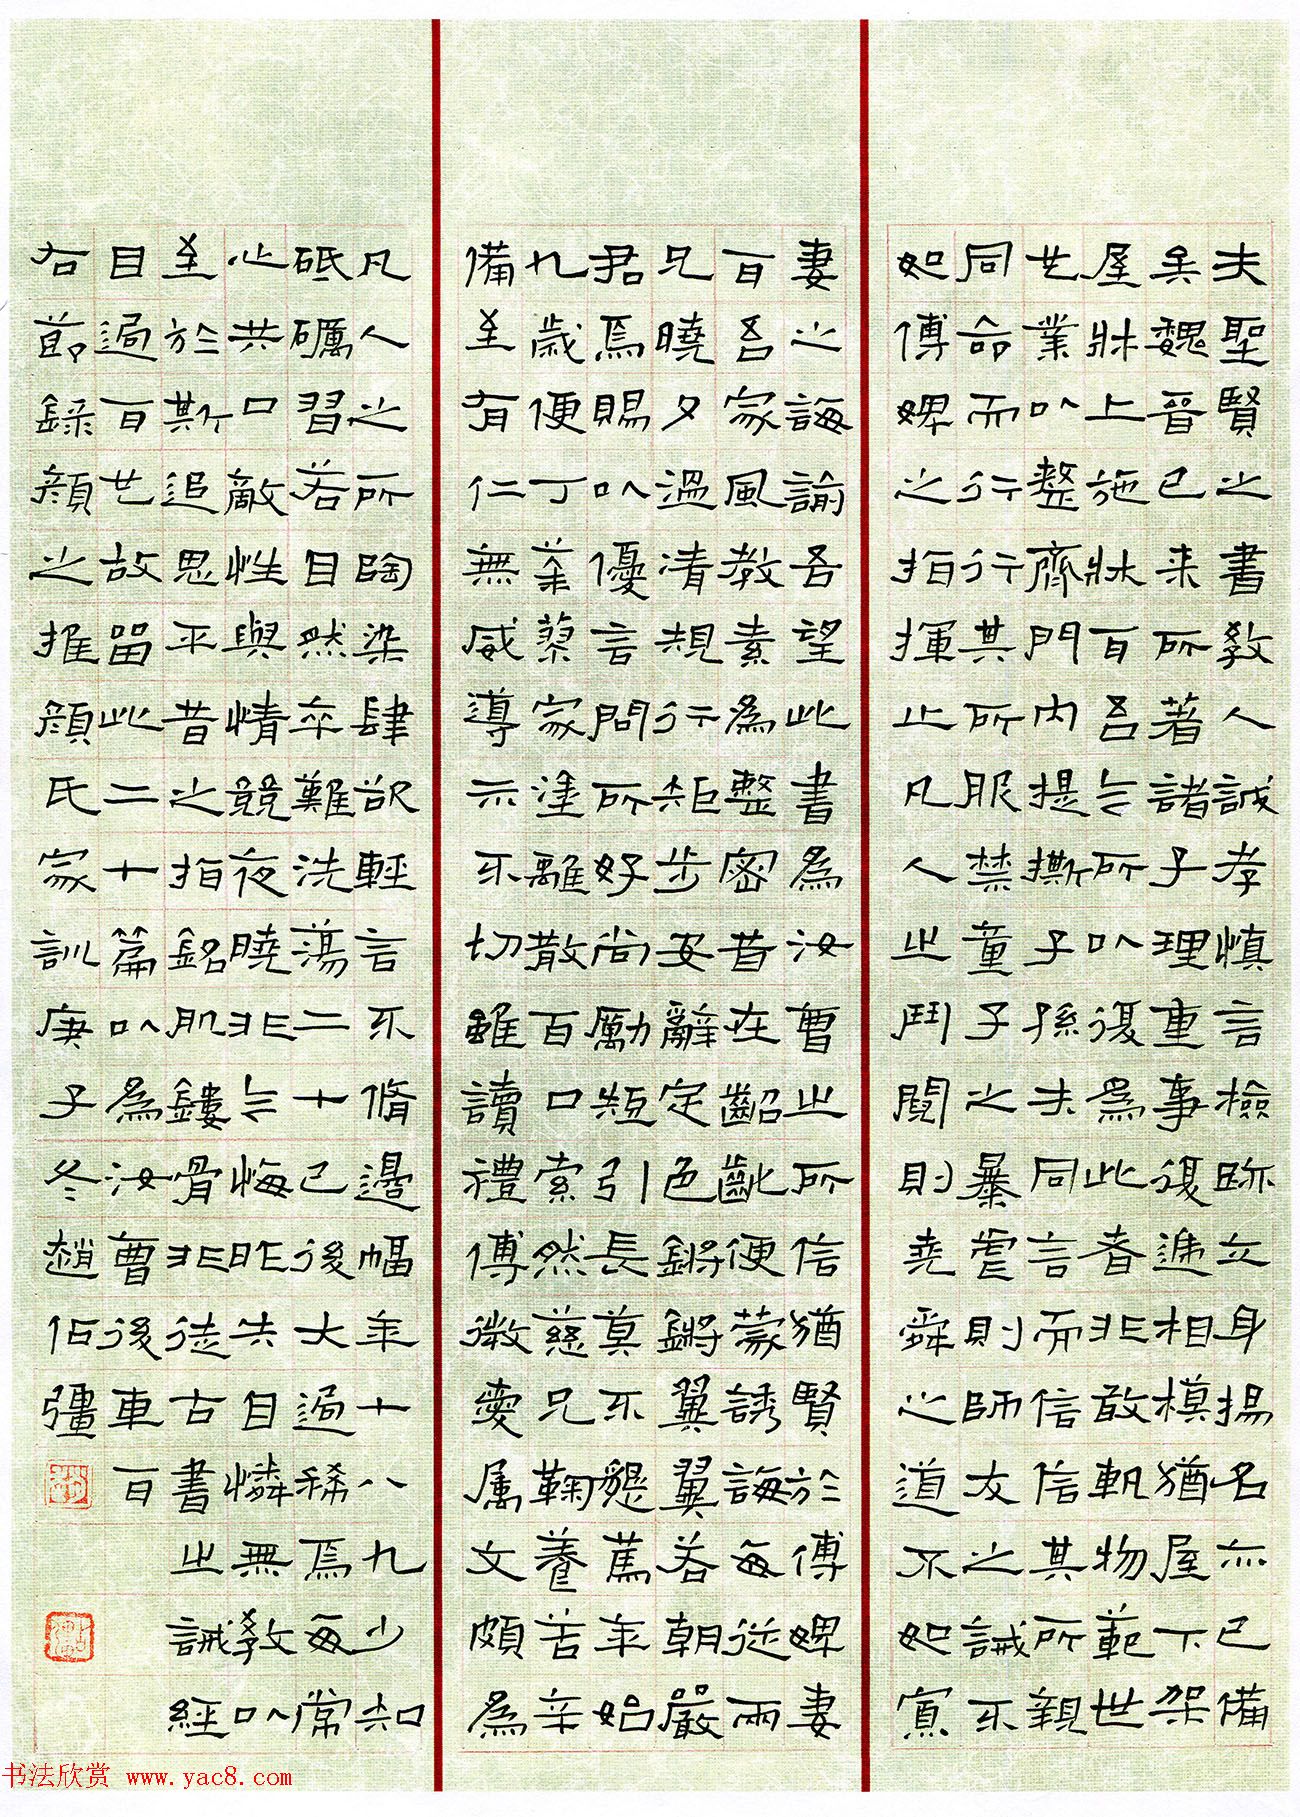 夫聖賢之書教人誠孝慎言檢跡立身揚名亦已備
矣魏晉已来所著諸子理重事復遞相模猶屋下架
屋牀上施牀耳吾今所以復為此者非敢軌物範世
也業以整齊門內提撕子孫夫同言而信信其所親
同命而行行其所服禁童子之暴虐則師友之誡不
如傅婢之指揮止凡人之鬥鬩則堯舜之道不如寡
妻之誨諭吾望此書為汝曹之所信猶賢於傅婢妻
耳吾家風教素為整密昔在齠齔便蒙誘誨每從兩
兄曉夕溫凊規行矩步安辭定色鏘鏘翼翼若朝嚴
君焉賜以優言問所好尚勵短引長莫不懇篤年始
九歲便丁荼蓼家塗離散百口索然慈兄鞠養苦辛
備至有仁無威導示不切雖讀禮傳微愛屬文頗為
凡人之所陶染肆欲輕言不脩邊幅年十八九少知
砥礪習若自然卒難洗蕩二十已後大過稀焉每常
心共口敵性與情競夜曉非今悔昨失自憐無教以
至於斯追思平昔之指銘肌鏤骨非徒古書之誡經
目過耳也故留此二十篇以為汝曹後車耳
右節錄顏之推顏氏家訓庚子冬趙佰彊
书法欣赏 www.yac8.com